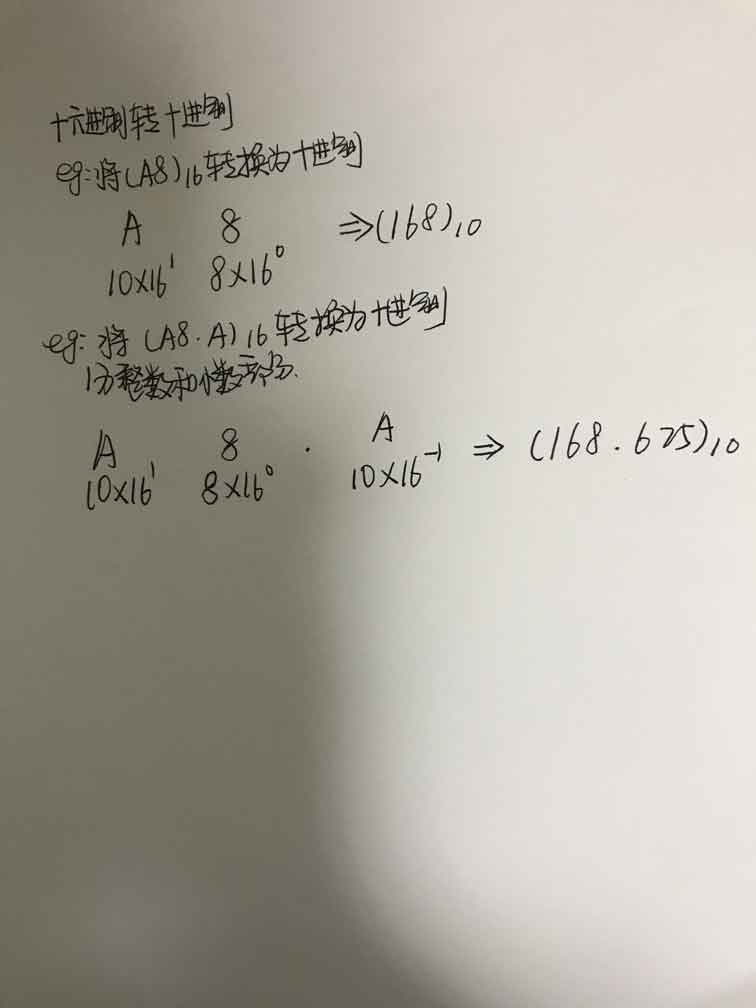 十六进制转十进制
eg:将(A8)₁₆转换为十进制
A 8 ⇒(168)₁₀
10×16¹ 8×16⁰
eg:将(A8.A)₁₆转换为十进制
分整数和小数部分.
A 8 . A ⇒ (168.625)₁₀
10×16¹ 8×16⁰ 10×16⁻¹